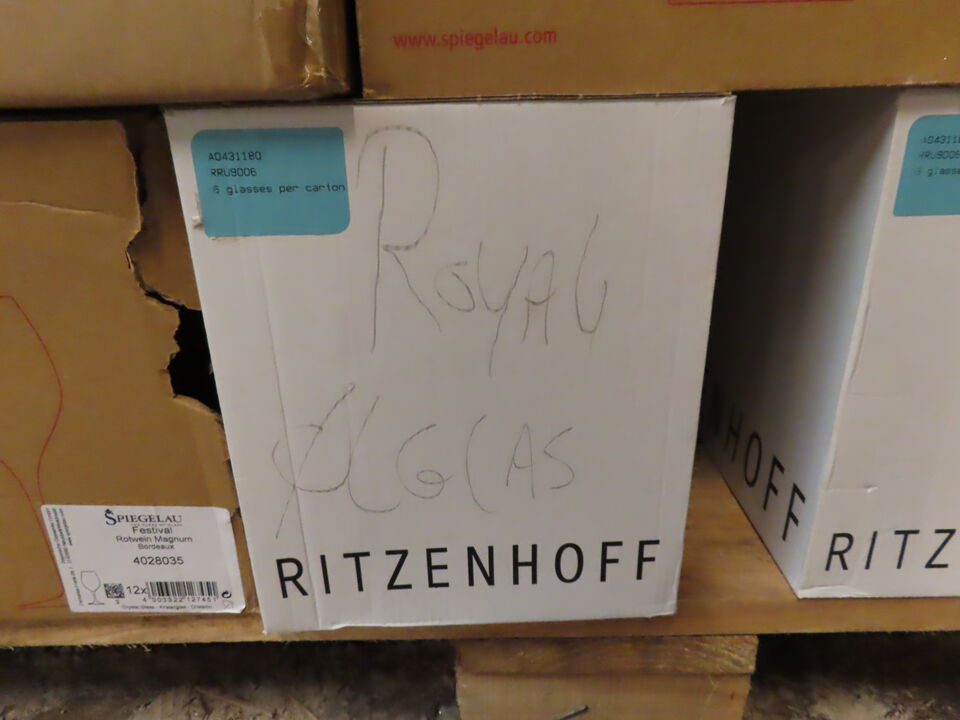 www.spiegelau.com
A0431180
RRU9006
6 glasses per carton
ROYAL
ØLGLAS
RITZENHOFF
SPIEGELAU
Festival
Rotwein Magnum
Bordeaux
4028035
12x
4 003322 127451
A04311
RRU9006
6 glass
NHOFF
RITZ